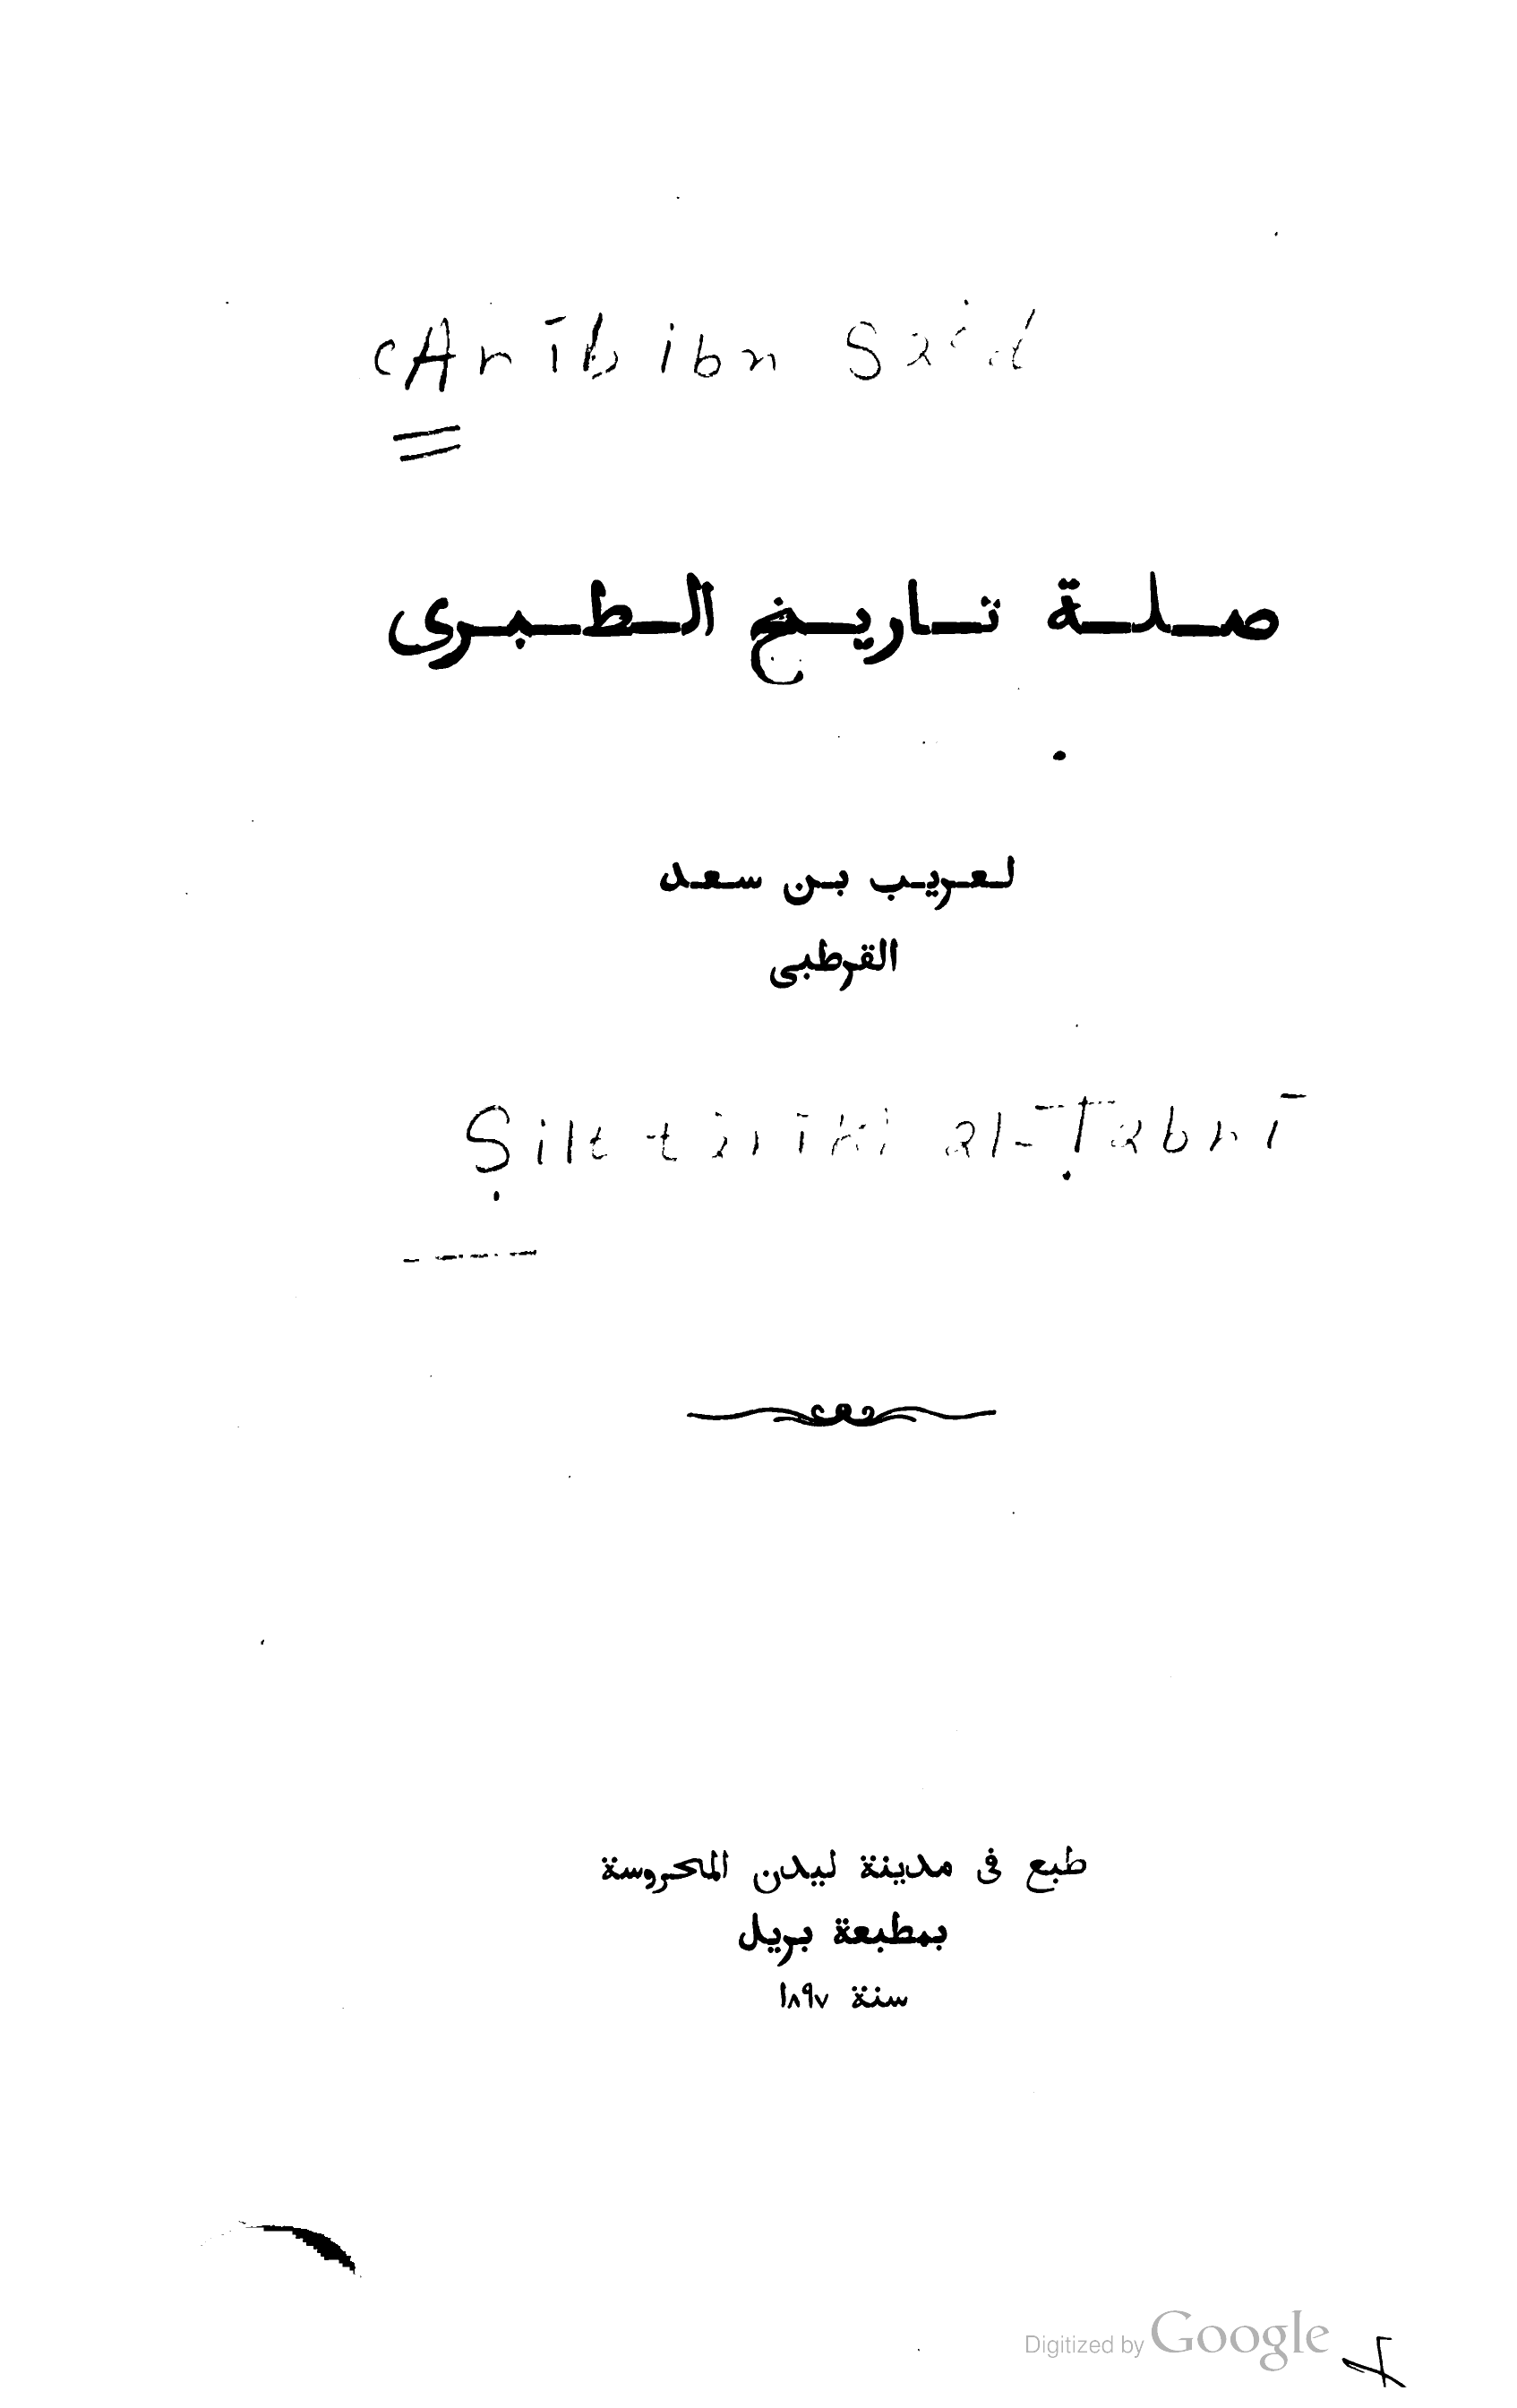 cArīb ibn Sa'd
صلة تاريخ الطبرى
لعريب بن سعد
القرطبى
al-Ṭabrī
طبع فى مدينة ليدن المحروسة
بمطبعة بريل
سنة ١٨٩٧
Digitized by Google